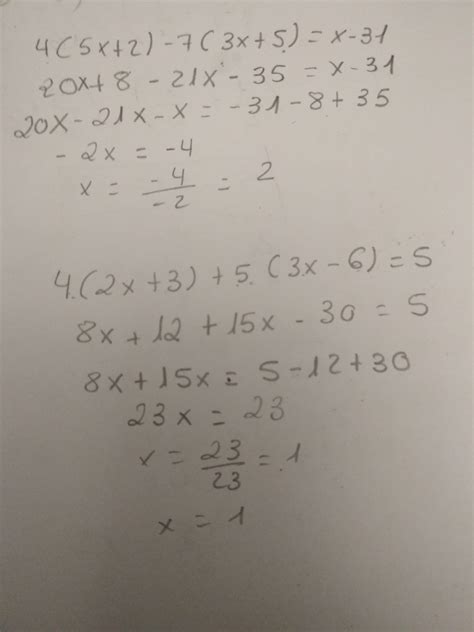 4(5x+2)-7(3x+5)=x-31
20x+8-21x-35=x-31
20x-21x-x=-31-8+35
-2x=-4
x=-4/-2=2
4.(2x+3)+5.(3x-6)=5
8x+12+15x-30=5
8x+15x=5-12+30
23x=23
x=23/23=1
x=1